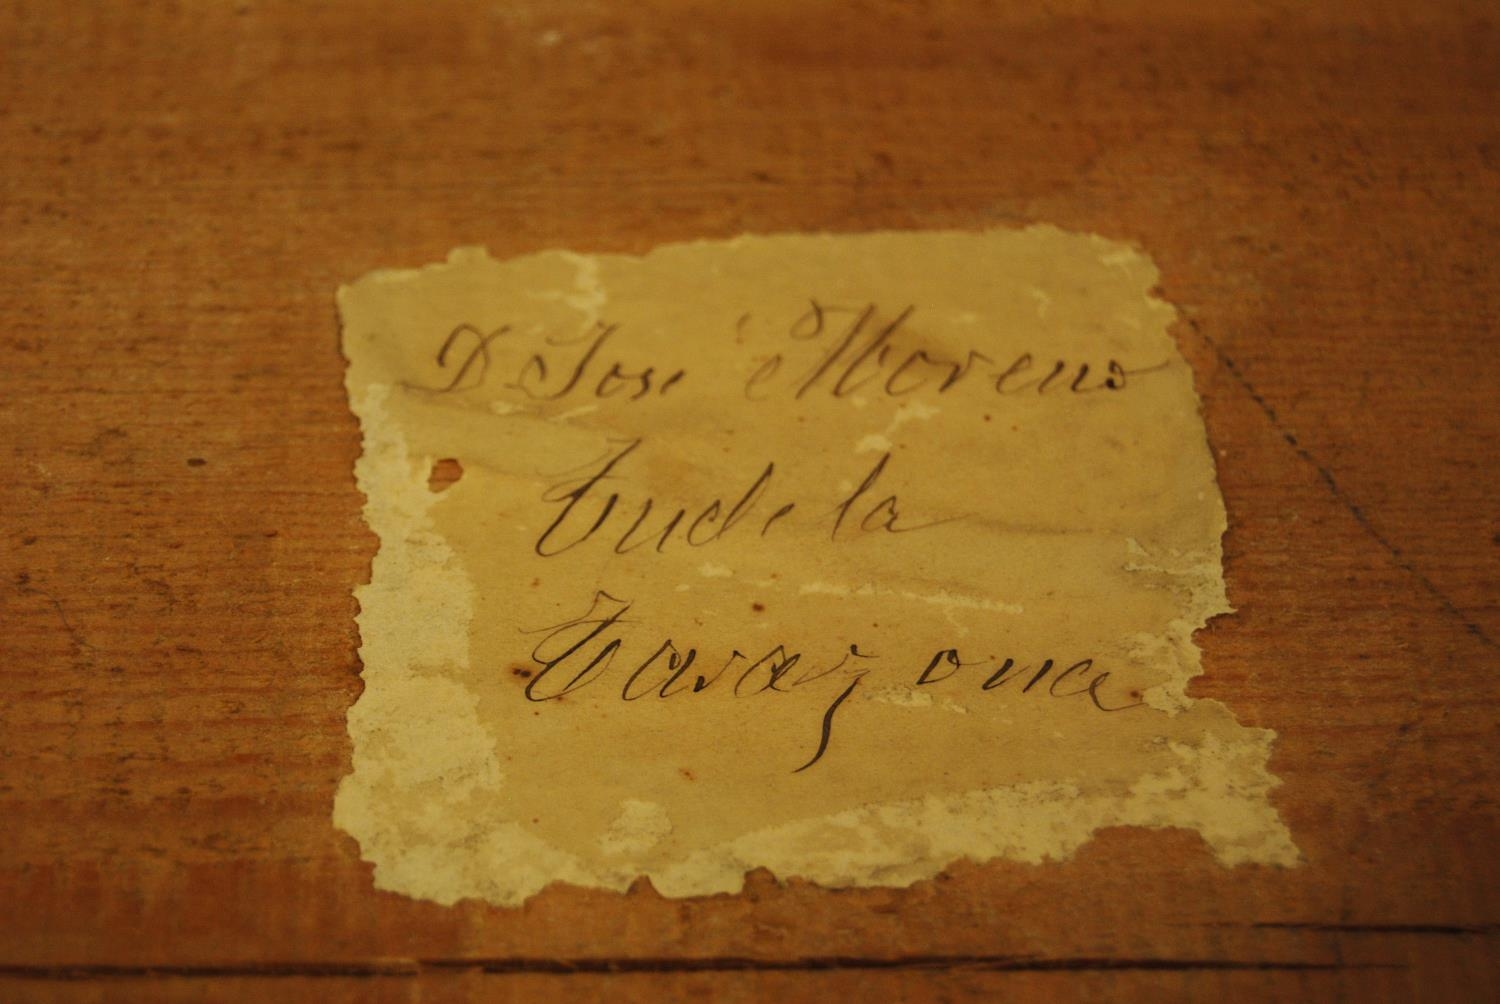 D. José Moreno
Tudela
Tarazona